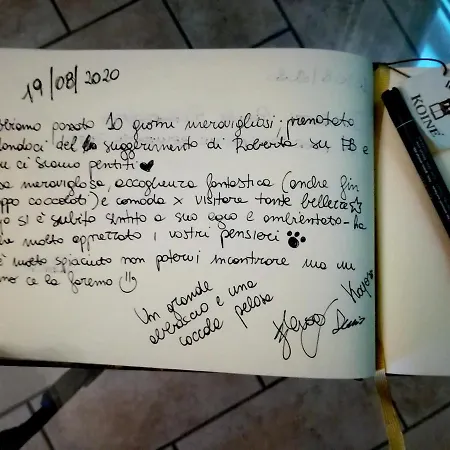 19/08/2020
bbiamo passato 10 giorni meravigliosi, prenotato
dandoci del suggerimento di Roberta su FB e
ci siamo pentiti
sa meravigliosa, accoglienza fantastica (anche fin
ppo coccolati) e comoda x visitare tante bellezze
si è subito sentito a suo agio e ambientato - ha
he molto apprezzato i vostri pensieri
è molto spiaciuto non potervi incontrare ma un
rno ce la faremo
Un grande
abbraccio e una
coccola pelosa
Denis
KOINÈ